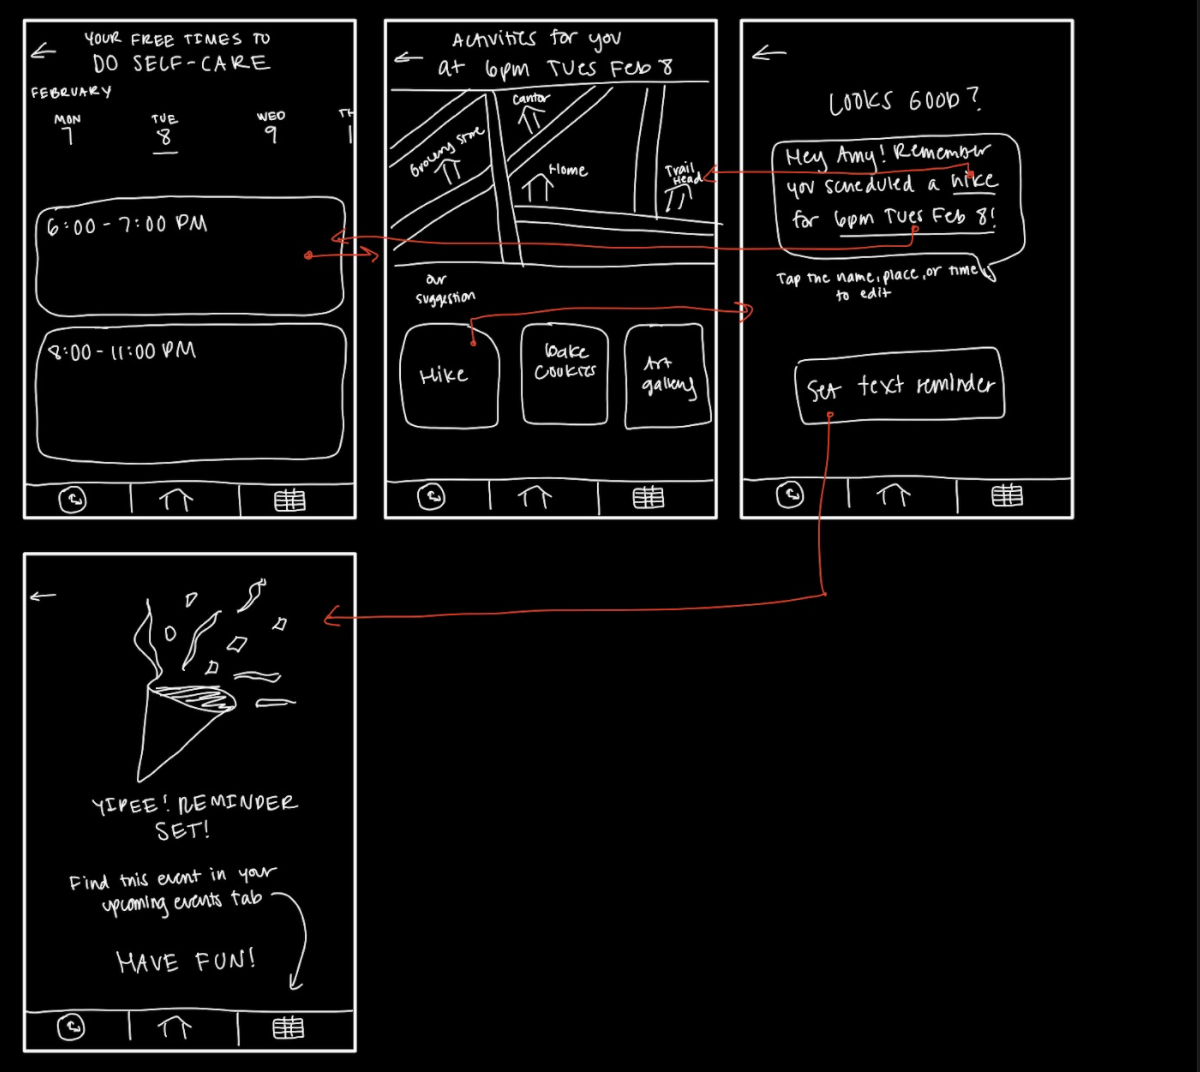 YOUR FREE TIMES TO
DO SELF-CARE
FEBRUARY
MON
7
TUE
8
WED
9
TH
1
6:00-7:00 PM
8:00-11:00 PM
Activities for you
at 6pm Tues Feb 8
Cantor
Grocery store
Home
Trail
Head
our
suggestion
Hike
bake
cookies
Art
gallery
LOOKS GOOD?
Hey Amy! Remember
you scheduled a hike
for 6pm Tues Feb 8!
Tap the name, place, or time
to edit
Set text reminder
YIPEE! REMINDER
SET!
Find this event in your
upcoming events tab
HAVE FUN!